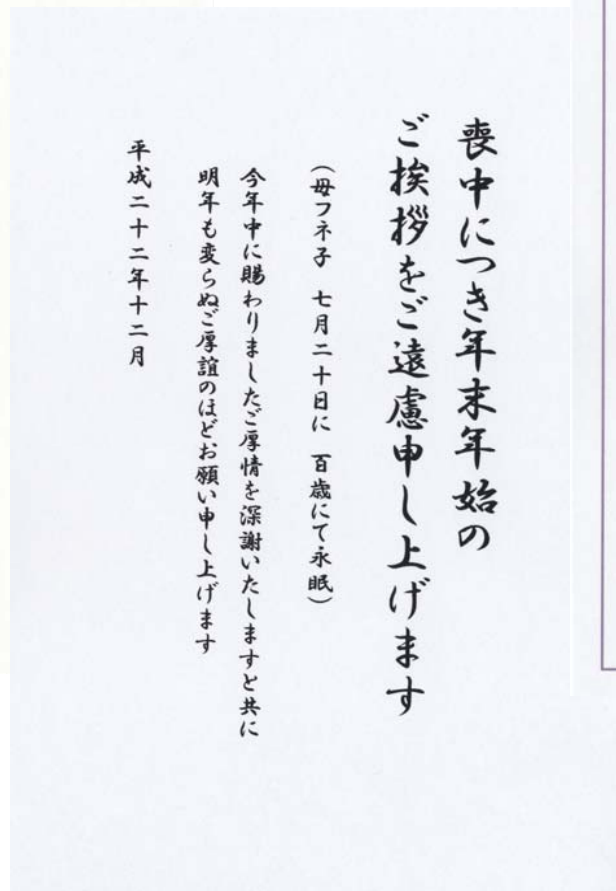 喪中につき年末年始の
ご挨拶をご遠慮申し上げます
(母フネ子 七月二十日に 百歳にて永眠)
今年中に賜わりましたご厚情を深謝いたしますと共に
明年も変らぬご厚誼のほどお願い申し上げます
平成二十二年十二月